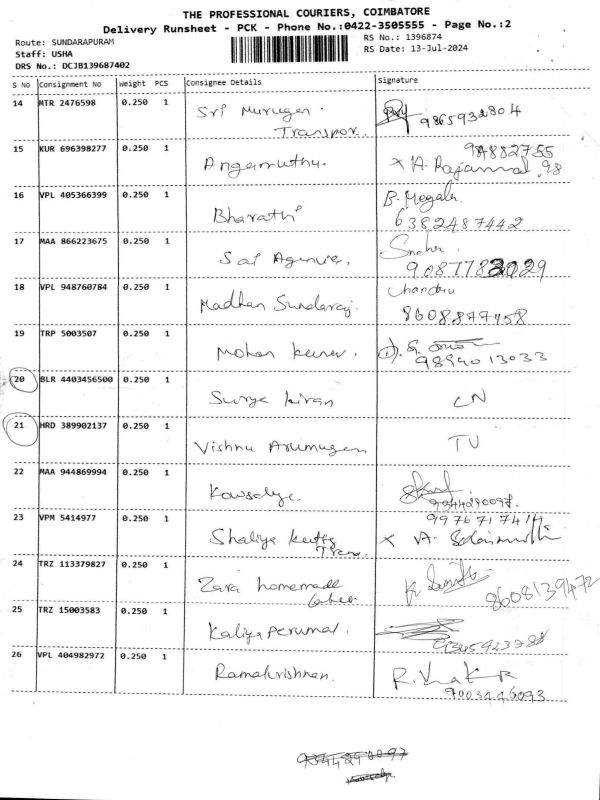 THE PROFESSIONAL COURIERS, COIMBATORE
Delivery Runsheet - PCK - Phone No.:0422-3505555 - Page No.:2
Route: SUNDARAPURAM
RS No.: 1396874
Staff: USHA
RS Date: 13-Jul-2024
DRS No.: DCJB139687402
S No Consignment No Weight PCS Consignee Details Signature
14 MTR 2476598 0.250 1 Sri Murugan
Transpor. 9865932804
15 KUR 696398277 0.250 1 Angamuthu.
16 VPL 405366399 0.250 1 Bharathi B. Megala
6382487442
17 MAA 866223675 0.250 1 Sai Agencies.
18 VPL 948760784 0.250 1 Madhan Sundaraj. Chandru
8608877458
19 TRP 5003507 0.250 1 Mohan kumar.
9894013033
20 BLR 4403456500 0.250 1 Surya kiran CN
21 HRD 389902137 0.250 1 Vishnu Arumugam TV
22 MAA 944869994 0.250 1 Kowsalya.
9344290097
23 VPM 5414977 0.250 1
9976717414
24 TRZ 113379827 0.250 1 Zara homemade
8608139472
25 TRZ 15003583 0.250 1 Kaliyaperumal.
26 VPL 404982972 0.250 1 Ramakrishnan.
9003446093